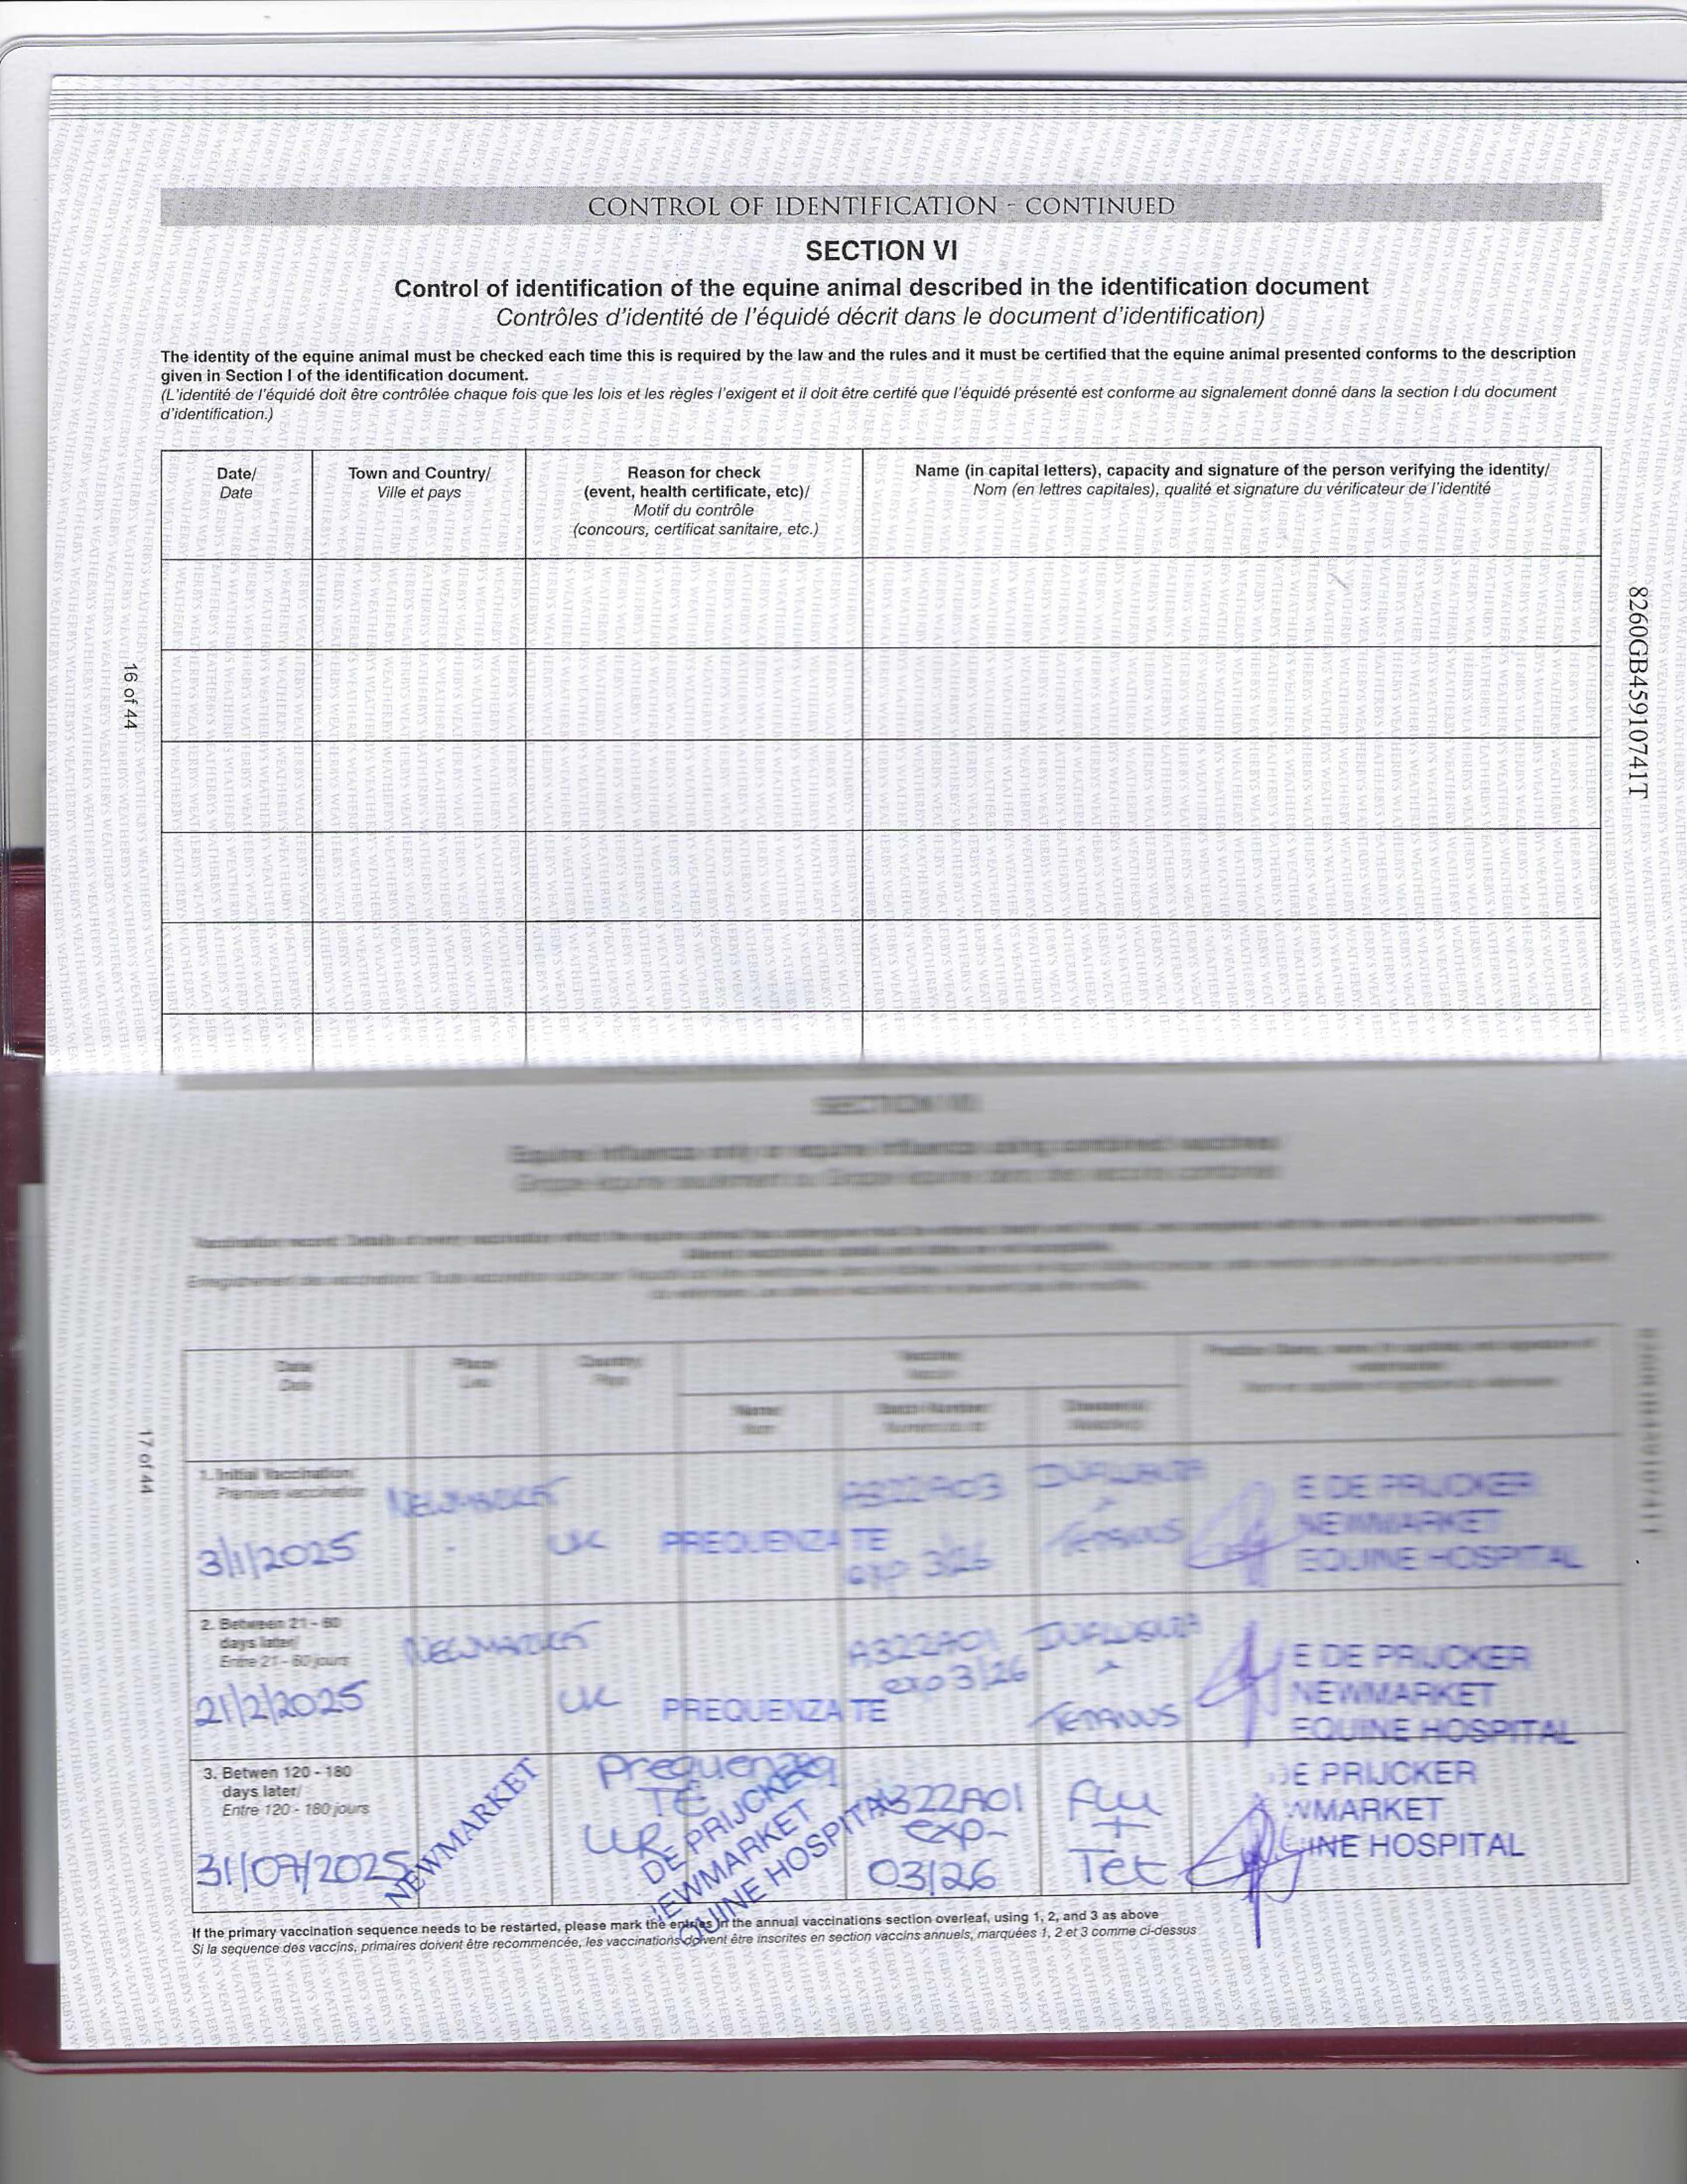 CONTROL OF IDENTIFICATION - CONTINUED
SECTION VI
Control of identification of the equine animal described in the identification document
Contrôles d'identité de l'équidé décrit dans le document d'identification)
The identity of the equine animal must be checked each time this is required by the law and the rules and it must be certified that the equine animal presented conforms to the description
given in Section I of the identification document.
(L'identité de l'équidé doit être contrôlée chaque fois que les lois et les règles l'exigent et il doit être certifé que l'équidé présenté est conforme au signalement donné dans la section I du document
d'identification.)
Date/
Date
Town and Country/
Ville et pays
Reason for check
(event, health certificate, etc)/
Motif du contrôle
(concours, certificat sanitaire, etc.)
Name (in capital letters), capacity and signature of the person verifying the identity/
Nom (en lettres capitales), qualité et signature du vérificateur de l'identité
16 of 44
8260GB45910741T
SECTION VII
Equine influenza only or equine influenza using combined vaccines
17 of 44
Date
Date
Place/
Lieu
Country/
Pays
Vaccine
Name/
Nom
Batch Number
1. Initial Vaccination/
Premiere vaccination
3/1/2025
NEWMARKET
UK
PREQUENZA TE
A322A03
exp 3/26
INFLUENZA
TETANUS
E DE PRIJCKER
NEWMARKET
EQUINE HOSPITAL
2. Between 21 - 60
days later/
Entre 21 - 60 jours
21/2/2025
NEWMARKET
UK
PREQUENZA TE
A322A01
exp 3/26
INFLUENZA
TETANUS
E DE PRIJCKER
NEWMARKET
EQUINE HOSPITAL
3. Betwen 120 - 180
days later/
Entre 120 - 180 jours
31/07/2025
NEWMARKET
Prequenza
TE
UK
DE PRIJCKER
EWMARKET
QUINE HOSPITAL
A322A01
exp-
03/26
Flu
+
Tet
DE PRIJCKER
WMARKET
INE HOSPITAL
If the primary vaccination sequence needs to be restarted, please mark the entries in the annual vaccinations section overleaf, using 1, 2, and 3 as above
Si la sequence des vaccins, primaires doivent être recommencée, les vaccinations doivent être inscrites en section vaccins annuels, marquées 1, 2 et 3 comme ci-dessus